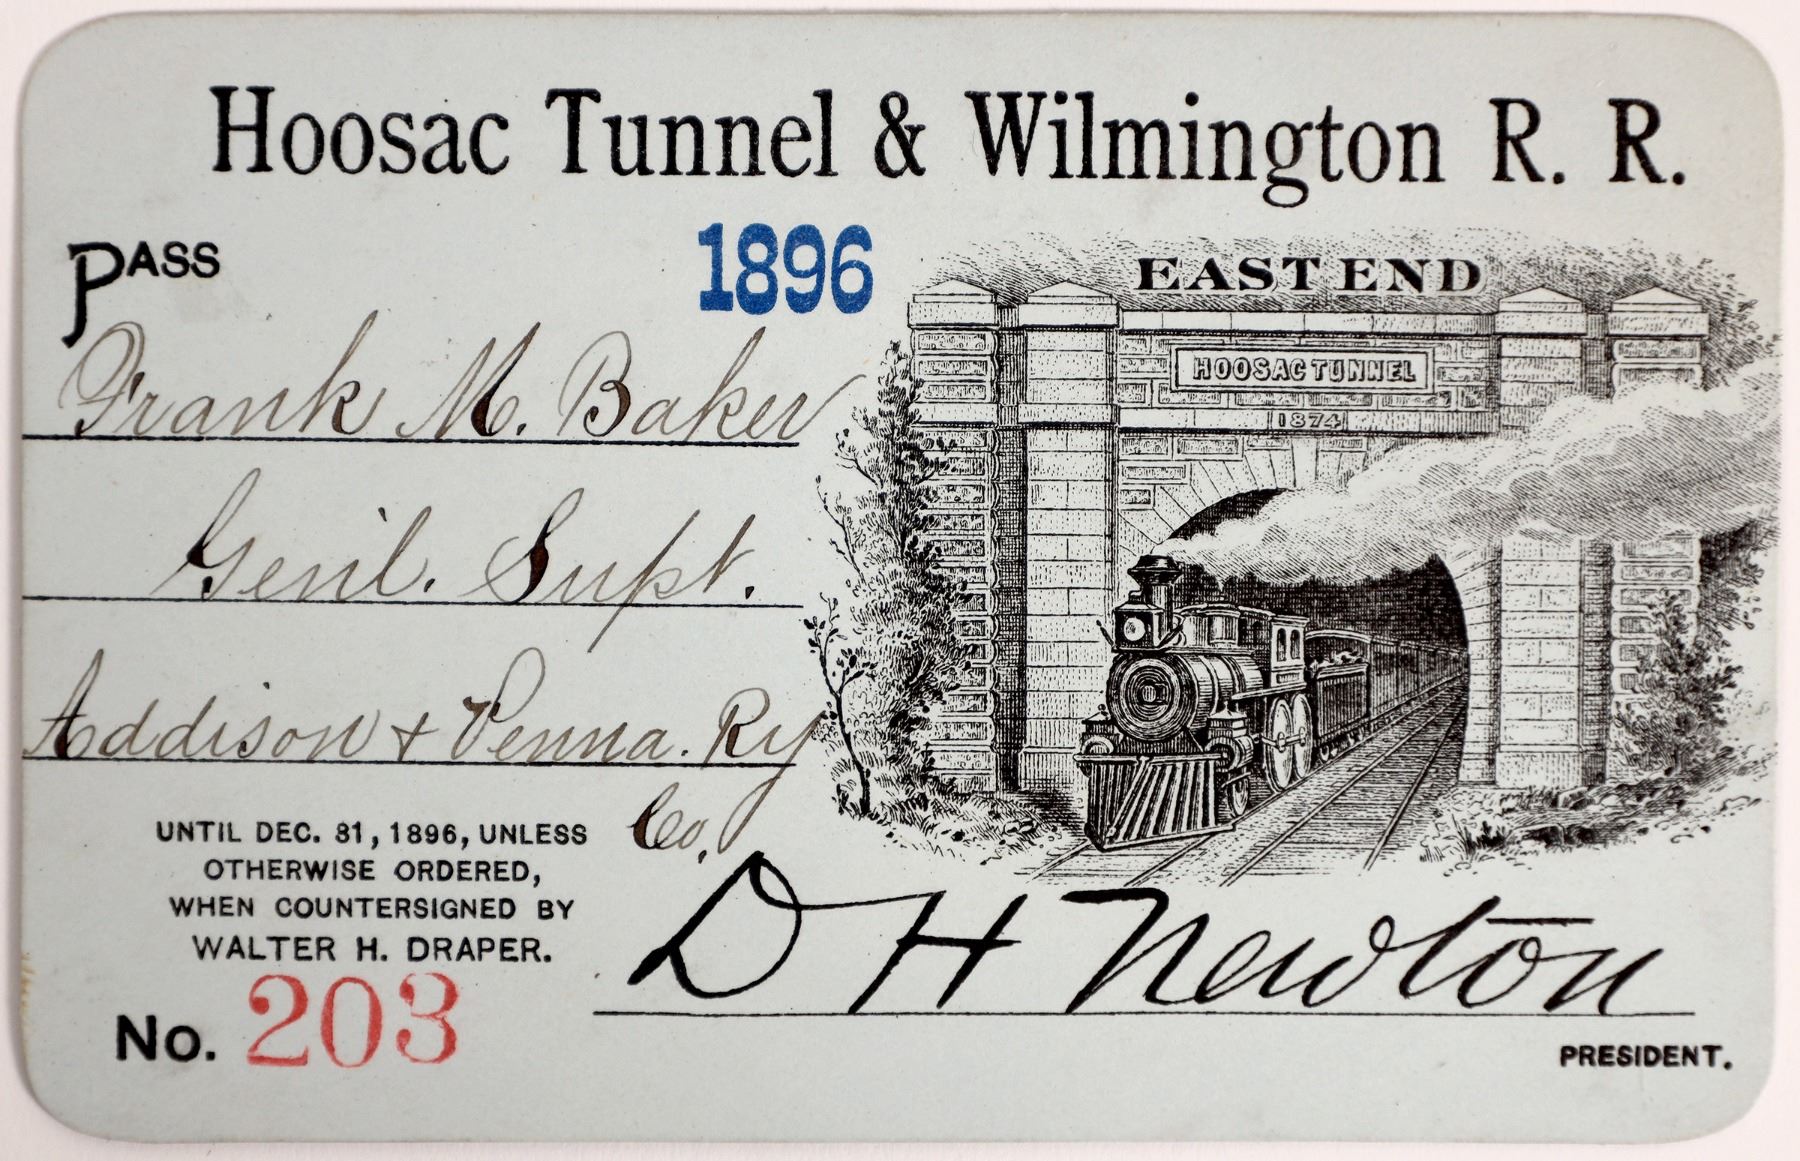 Hoosac Tunnel & Wilmington R. R.
PASS
1896
EAST END
HOOSAC TUNNEL
1874
Frank M. Baker
Genl. Supt.
Addison + Penna. Ry
Co.
UNTIL DEC. 31, 1896, UNLESS
OTHERWISE ORDERED,
WHEN COUNTERSIGNED BY
WALTER H. DRAPER.
No. 203
D H Newton
PRESIDENT.